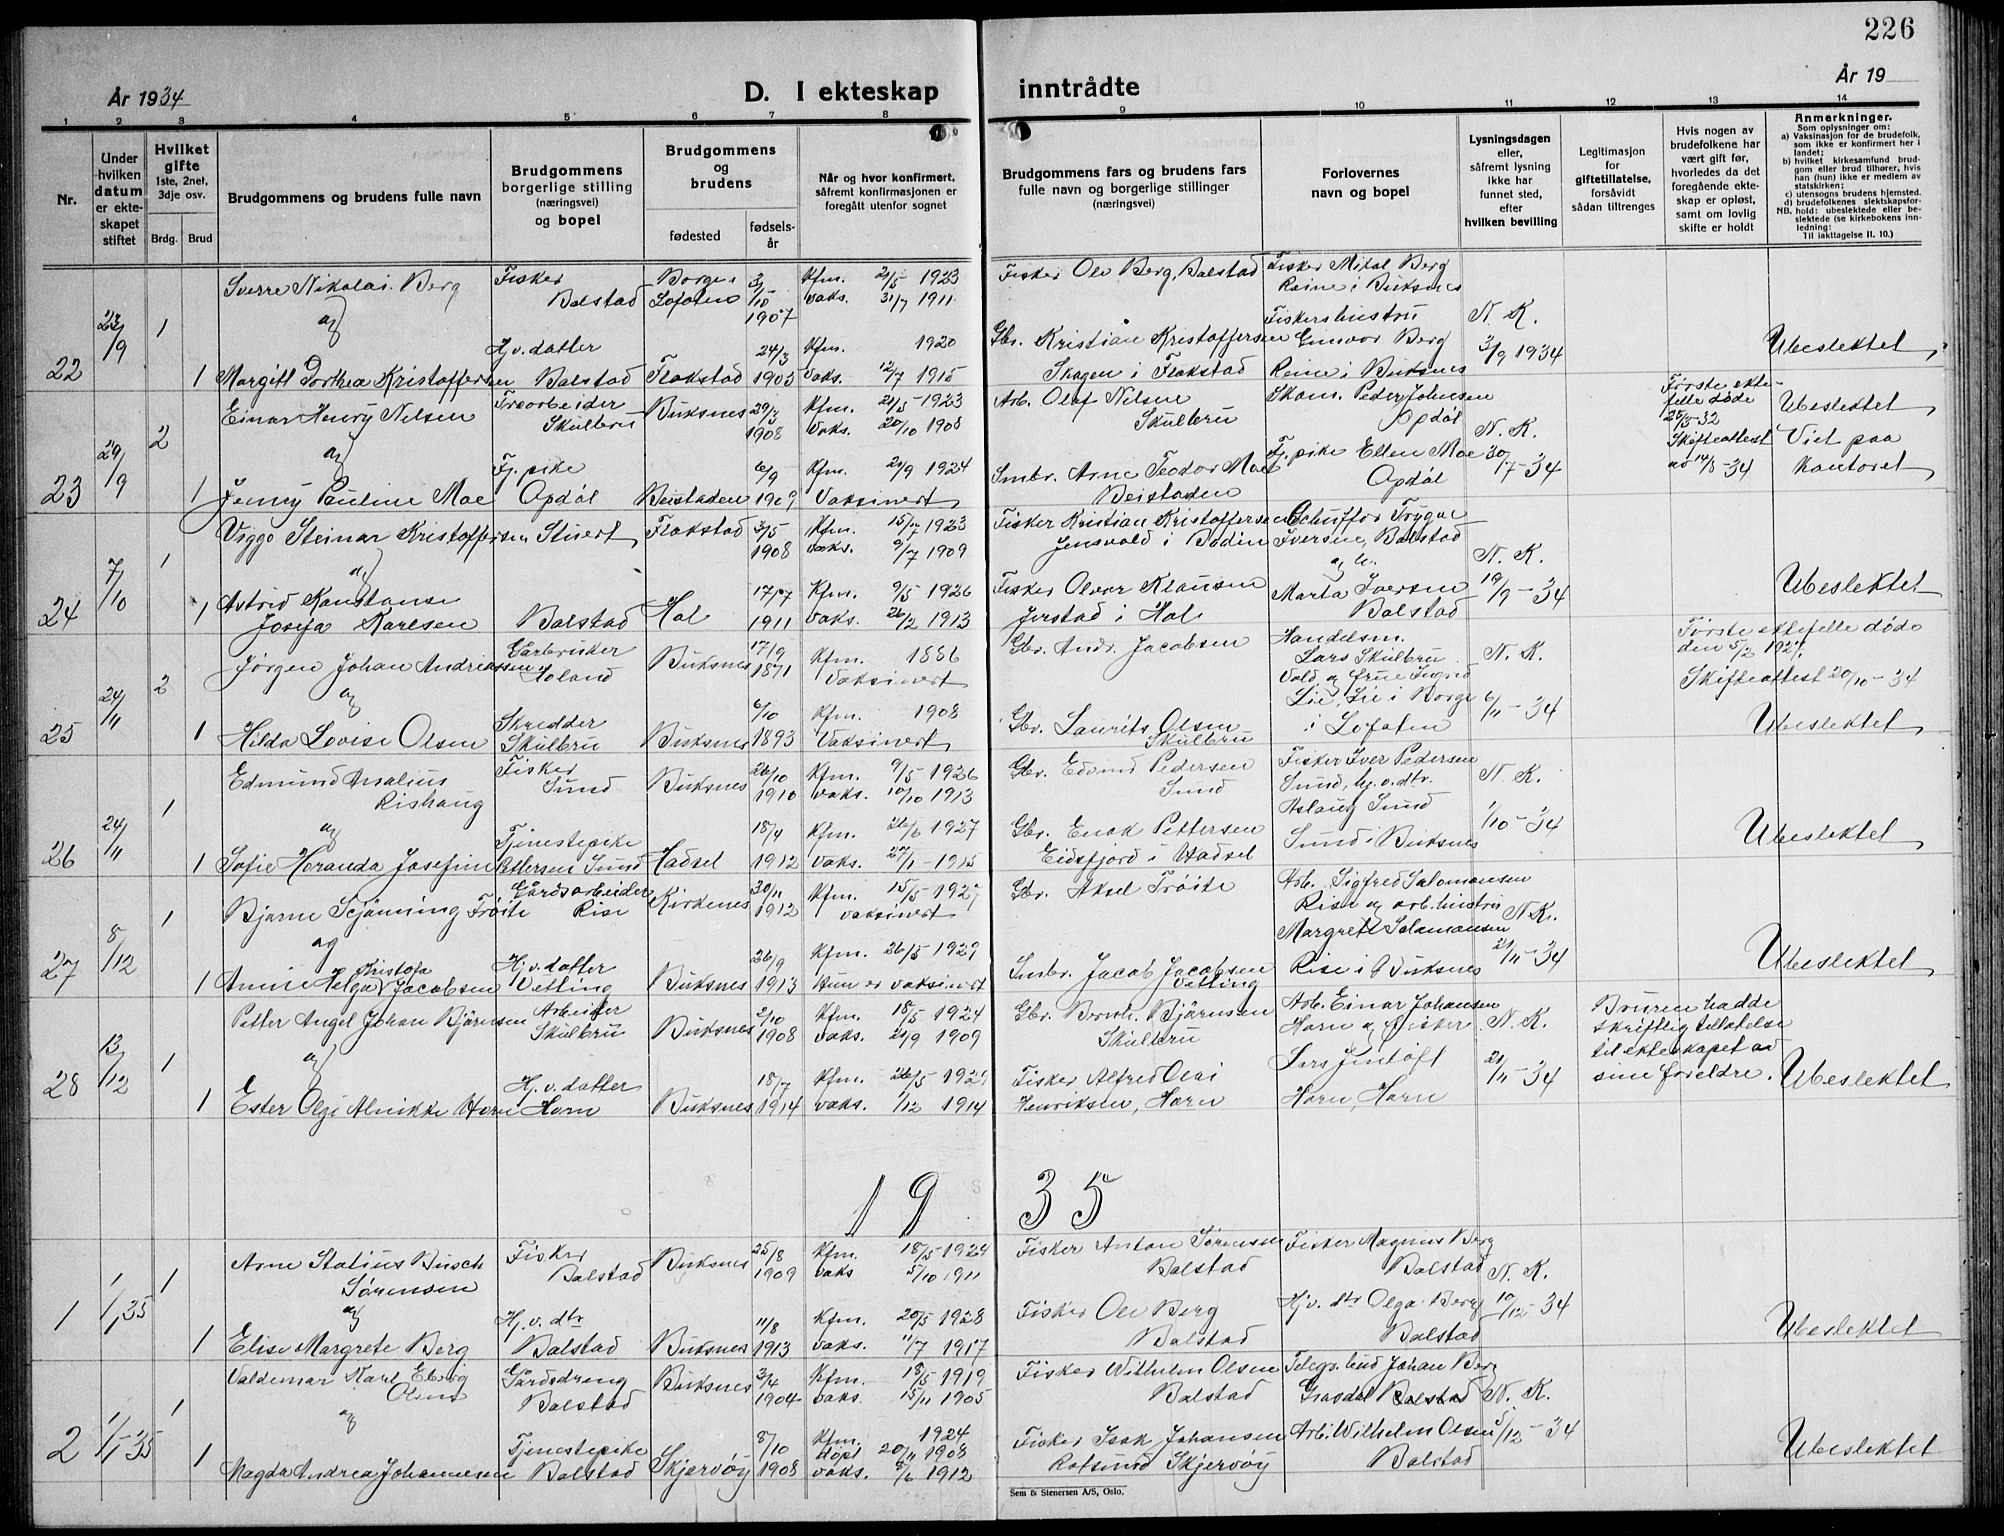 226
År 1934
D. I ekteskap inntrådte
År 19
1 2 3 4 5 6 7 8 9 10 11 12 13 14
Nr.
Under hvilken datum er ekteskapet stiftet
Hvilket gifte 1ste, 2net, 3dje osv.
Brdg. Brud
Brudgommens og brudens fulle navn
Brudgommens borgerlige stilling (næringsvei) og bopel
Brudgommens og brudens
fødested
fødselsår
Når og hvor konfirmert, såfremt konfirmasjonen er foregått utenfor sognet
Brudgommens fars og brudens fars fulle navn og borgerlige stillinger (næringsvei)
Forlovernes navn og bopel
Lysningsdagen eller, såfremt lysning ikke har funnet sted, efter hvilken bevilling
Legitimasjon for giftetillatelse, forsåvidt sådan tiltrenges
Hvis nogen av brudefolkene har vært gift før, hvorledes da det foregående ekteskap er opløst, samt om lovlig skifte er holdt
Anmerkninger.
Som oplysninger om:
a) Vaksinasjon for de brudefolk, som ikke er konfirmert her i landet;
b) hvilket kirkesamfund brudgom eller brud tilhører, hvis han (hun) ikke er medlem av statskirken;
c) utensogns brudens hjemsted.
d) brudefolkenes slektskapsforhold: ubeslektede eller beslektede (se kirkebokens innledning:
NB. Til iakttagelse II. 10.)
22 23/9 1 Sverre Nikolai Berg Fisker Balstad Borge i Lofoten 3/10 1907 Kfm. 21/5 1923 Vaks. 31/7 1911 Fisker Ole Berg, Balstad Fisker Mikal Berg Reine i Buksnes
og
1 Margitt Dorthea Kristoffersen Hj.v. datter Balstad Flakstad 24/3 1905 Kfm. 1920 Vaks. 12/7 1915 Gbr. Kristian Kristoffersen Skagen i Flakstad Fiskershustru Gunvor Berg Reine i Buksnes N. K. 3/9 1934 Ubeslektet
23 29/9 2 Einar Henry Nilsen Treorbeider Skulbru Buksnes 29/3 1908 Kfm. 21/5-1923 Vaks. 20/10 1908 Arb. Olaf Nilsen Skulbru Skom. Peder Johnsen Opdøl
og
1 Jenny Pauline Moe Fj. pike Opdøl Beistaden 6/9 1909 Kfm. 21/9 1924 Vaksinert Smbr. Arne Teodor Moe Beistaden Fj. pike Ellen Moe Opdøl N. K. 30/7-34 Første ektefelle døde 25/5-32 Skifteattest av 14/8-34 Ubeslektet Viet paa kontoret
24 7/10 1 Viggo Steinar Kristoffersen Stuert Flakstad 3/5 1908 Kfm. 15/7 1923 Vaks. 9/7 1909 Fisker Kristian Kristoffersen Jensvold i Bodin Schuffør Trygve Iversen, Balstad
og
1 Astrid Konstanse Josefa Karlsen Balstad Hol 17/7 1911 Kfm. 9/5 1926 Vaks. 26/2 1913 Fisker Olver Klausen Jerstad i Hol Marta Iversen Balstad N. K. 19/9-34 Ubeslektet
25 24/11 2 Jørgen Johan Andreassen Gårbruker Holand Buksnes 17/9 1871 Kfm. 1886 Vaksinert Gbr. Andr. Jacobsen Handelsm. Lars Skulbru Vold og frue Ingrid
og
1 Hilda Lovise Olsen Skredder Skulbru Buksnes 6/10 1893 Kfm. 1908 Vaksinert Gbr. Laurits Olsen Skulbru Lie, Lie i Borge i Lofoten N. K. 6/11-34 Første ektefelle døde den 5/2 1927. Skifteattest 20/10-34 Ubeslektet
26 24/11 1 Edmund Analius Rishaug Fisker Sund Buksnes 26/10 1910 Kfm. 9/5 1926 Vaks. 10/10 1913 Gbr. Edvind Pedersen Sund Fisker Iver Pedersen Sund, hj.v.dtr. Aslaug Sund
og
1 Sofie Horanda Josefine Pettersen Tjenestepike Sund Hadsel 18/4 1912 Kfm. 26/6 1927 Vaks. 27/1-1915 Gbr. Enok Pettersen Eidsfjord i Hadsel Sund i Buksnes N. K. 1/10-34 Ubeslektet
27 8/12 1 Bjarne Scjønning Trøite Gårdsarbeider Rise Kirkenes 30/11 1912 Kfm. 15/5-1927 Vaksinert Gbr. Aksel Trøite Arb. Sigfred Salomonsen Rise og arb. hustru
og
1 Annie Helga Kristofa Jacobsen Hj.v. datter Vetting Buksnes 26/9 1913 Kfm. 26/5 1929 Hun er vaksinert Smbr. Jacob Jacobsen Vetting Margrett Salamonsen Rise i Buksnes N. K. 21/11-34 Ubeslektet
28 13/12 1 Petter Angel Johan Bjørnsen Arbeider Skulbru Buksnes 2/10 1908 Kfm. 18/5 1924 Vaks. 21/9 1909 Gbr. Bernh. Bjørnsen Skulbru Arb. Einar Johansen Horn og fisker
og
1 Ester Olgi Alvikke Horn Hj.v. datter Horn Buksnes 18/7 1914 Kfm. 26/5 1929 Vaks. 1/12 1914 Fisker Alfred Olai Henriksen, Horn Lars Jentoft Horn, Horn N. K. 21/11-34 Bruren hadde skriftlig tillatelse til ekteskapet av sine foreldre. Ubeslektet
1935
1 1/1 35 1 Arne Stalius Busch Sørensen Fisker Balstad Buksnes 25/8 1909 Kfm. 18/5 1924 Vaks 5/10 1911 Fisker Anton Sørensen Balstad Fisker Magnus Berg Balstad
og
1 Elise Margrete Berg Hj.v. dtr Balstad Buksnes 11/8 1913 Kfm. 20/5 1928 Vaks. 11/7 1917 Fisker Ole Berg Balstad Hj.v. dtr Olga Berg Balstad N. K. 10/12-34 Ubeslektet
2 1/1-35 1 Valdemar Karl Eberg Olsen Gårdsdreng Balstad Buksnes 3/4 1904 Kfm. 18/5 1919 Vaks. 15/11 1905 Fisker Wilhelm Olsen Balstad Telegr. bud Johan Berg Gravdal Balstad
og
1 Magda Andrea Johannesen Tjenestepike Balstad Skjervøy 8/10 1908 Kfm. 1924 døpt 20/11 1908 Vaks. 8/6 1912 Fisker Isak Johansen Rotsund Skjervøy Arb. Wilhelm Olsen Balstad N. K. 5/12-34 Ubeslektet
Sem & Stenersen A/S, Oslo.